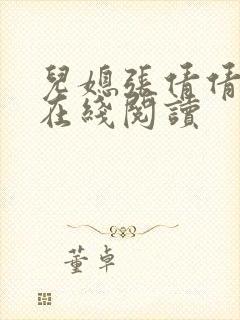 兒媳張倩倩
在綫閱讀
董卓